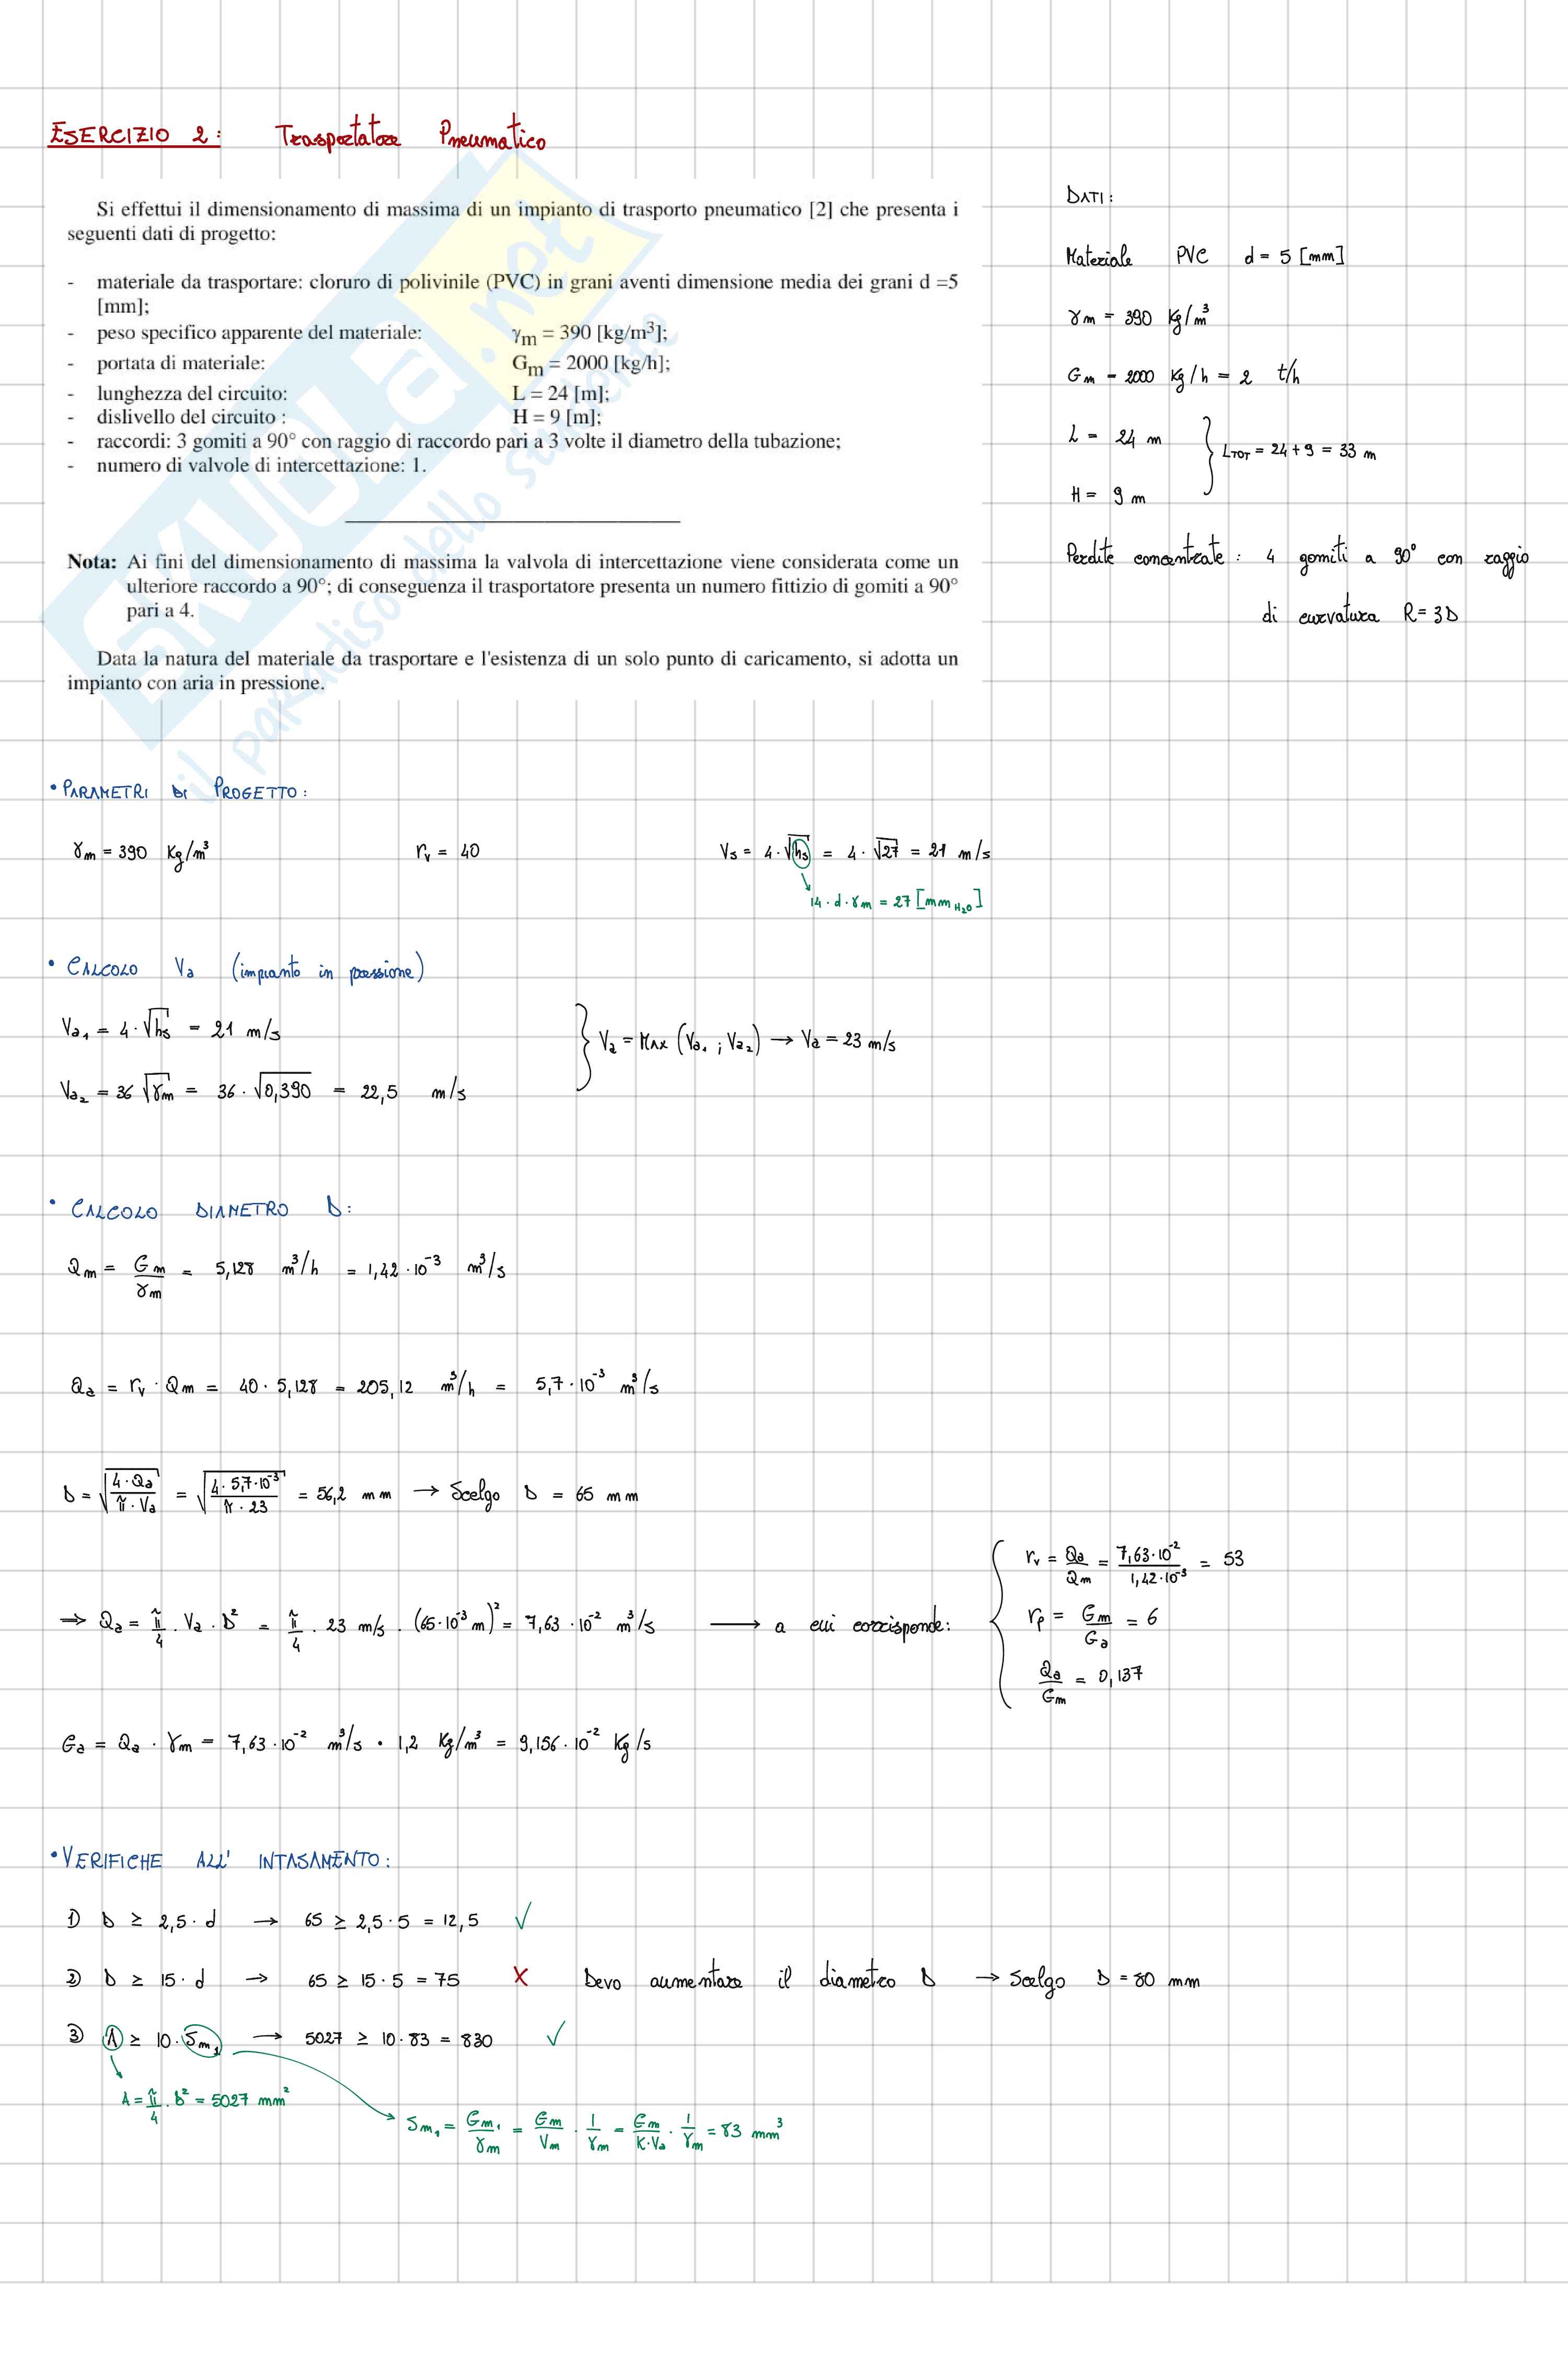 ESERCIZIO 2: Trasportatore Pneumatico
Si effettui il dimensionamento di massima di un impianto di trasporto pneumatico [2] che presenta i
seguenti dati di progetto:
- materiale da trasportare: cloruro di polivinile (PVC) in grani aventi dimensione media dei grani d =5
[mm];
- peso specifico apparente del materiale: γm = 390 [kg/m³];
- portata di materiale: Gm = 2000 [kg/h];
- lunghezza del circuito: L = 24 [m];
- dislivello del circuito : H = 9 [m];
- raccordi: 3 gomiti a 90° con raggio di raccordo pari a 3 volte il diametro della tubazione;
- numero di valvole di intercettazione: 1.
Nota: Ai fini del dimensionamento di massima la valvola di intercettazione viene considerata come un
ulteriore raccordo a 90°; di conseguenza il trasportatore presenta un numero fittizio di gomiti a 90°
pari a 4.
Data la natura del materiale da trasportare e l'esistenza di un solo punto di caricamento, si adotta un
impianto con aria in pressione.
SKUOLA.net
il paradiso dello studente
DATI:
Materiale PVC d = 5 [mm]
γm = 390 Kg/m³
Gm = 2000 Kg/h = 2 t/h
L = 24 m
H = 9 m
LTOT = 24+9 = 33 m
Perdite concentrate: 4 gomiti a 90° con raggio
di curvatura R=3D
• PARAMETRI DI PROGETTO:
γm = 390 Kg/m³ rv = 40 Vs = 4·√hs = 4·√27 = 21 m/s
14·d·γm = 27 [mm H2O]
• CALCOLO Va (impianto in pressione)
Va1 = 4·√hs = 21 m/s
Va2 = 36 √γm = 36·√0,390 = 22,5 m/s
} Va = MAX (Va1 ; Va2) → Va = 23 m/s
• CALCOLO DIAMETRO D:
Qm = Gm/γm = 5,128 m³/h = 1,42·10⁻³ m³/s
Qa = rv · Qm = 40·5,128 = 205,12 m³/h = 5,7·10⁻³ m³/s
D = √(4·Qa/π·Va) = √(4·5,7·10⁻³/π·23) = 56,2 mm → Scelgo D = 65 mm
⇒ Qa = π/4 · Va · D² = π/4 · 23 m/s · (65·10⁻³ m)² = 7,63·10⁻² m³/s → a cui corrisponde:
rv = Qa/Qm = 7,63·10⁻²/1,42·10⁻³ = 53
rp = Gm/Ga = 6
Qa/Gm = 0,137
Ga = Qa · γm = 7,63·10⁻² m³/s · 1,2 Kg/m³ = 9,156·10⁻² Kg/s
• VERIFICHE ALL' INTASAMENTO:
1) D ≥ 2,5·d → 65 ≥ 2,5·5 = 12,5 ✓
2) D ≥ 15·d → 65 ≥ 15·5 = 75 X Devo aumentare il diametro D → Scelgo D = 80 mm
3) A ≥ 10·Sm1 → 5027 ≥ 10·83 = 830 ✓
A = π/4 · D² = 5027 mm²
Sm1 = Gm1/γm = Gm/Vm · 1/γm = Gm/K·Va · 1/γm = 83 mm³